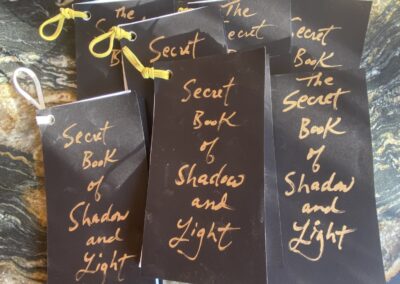 The
Secret
Book
Secret
Book
Secret
Book
of
Shadow
and
Light
Secret
Book
of
Shadow
and
Light
The
Secret
Book
of
Shadow
and
Light